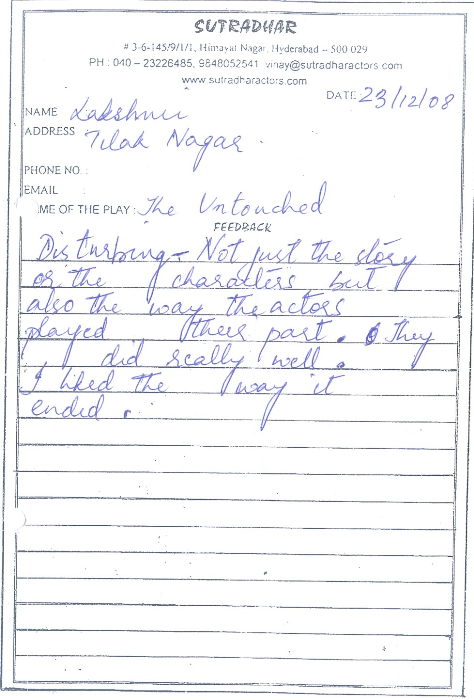 SUTRADHAR
# 3-6-145/9/1/1, Himayat Nagar, Hyderabad – 500 029
PH : 040 – 23226485, 9848052541 vinay@sutradharactors.com
www.sutradharactors.com
DATE : 23/12/08
NAME Lakshmi
ADDRESS Tilak Nagar.
PHONE NO. :
EMAIL
ME OF THE PLAY : The Untouched
FEEDBACK
Disturbing – Not just the story
or the characters but
also the way the actors
played their part. They
did really well.
I liked the way it
ended.